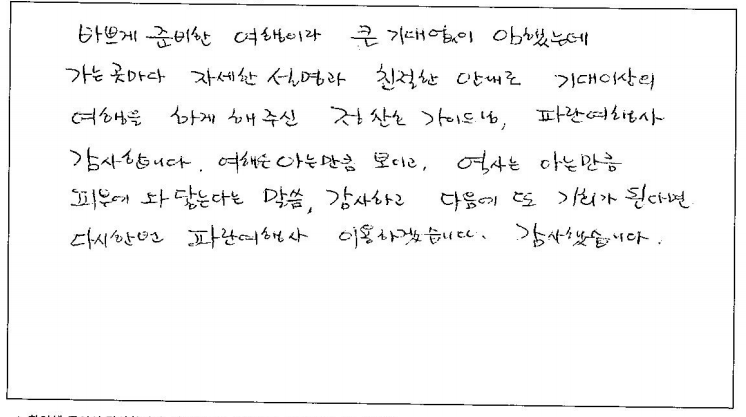 바쁘게 준비한 여행이라 큰 기대없이 임했는데
가는곳마다 자세한 설명과 친절한 안내로 기대이상의
여행을 하게 해주신 정찬호 가이드님, 파란여행사
감사합니다. 여행은 아는만큼 보이고, 역사는 아는만큼
피부에 와 닿는다는 말씀, 감사하고 다음에 또 기회가 된다면
다시한번 파란여행사 이용하겠습니다. 감사했습니다.